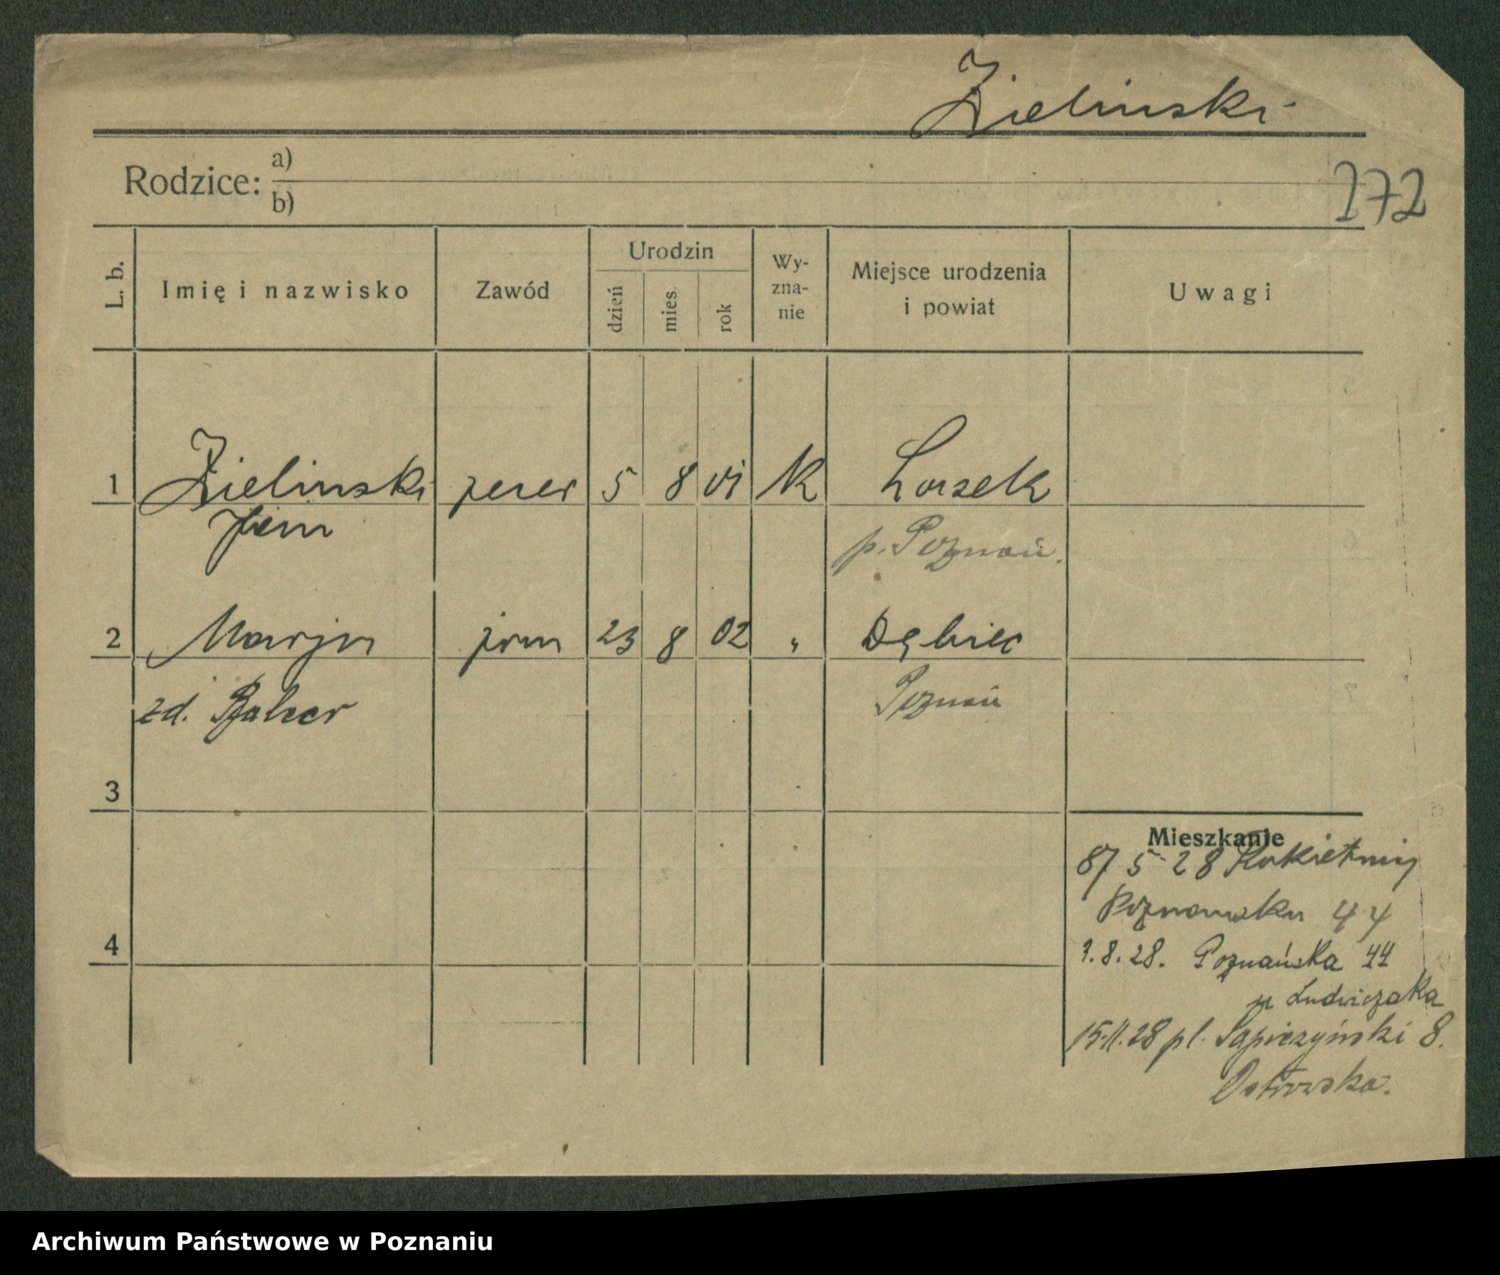 Zielinski
Rodzice: a)
b)
272
L. b. Imię i nazwisko Zawód Urodzin dzień mies. rok Wy-zna-nie Miejsce urodzenia i powiat Uwagi
1 Zielinski 5 8 01 K
p. Poznań.
2 23 8 02 " Dębiec
zd. Poznań
3
Mieszkanie
5 28
4 44
1.8.28. Poznańska 44
u Ludwiczaka
15.11.28 pl. Sapieżyński 8.
Ostrowska.
Archiwum Państwowe w Poznaniu